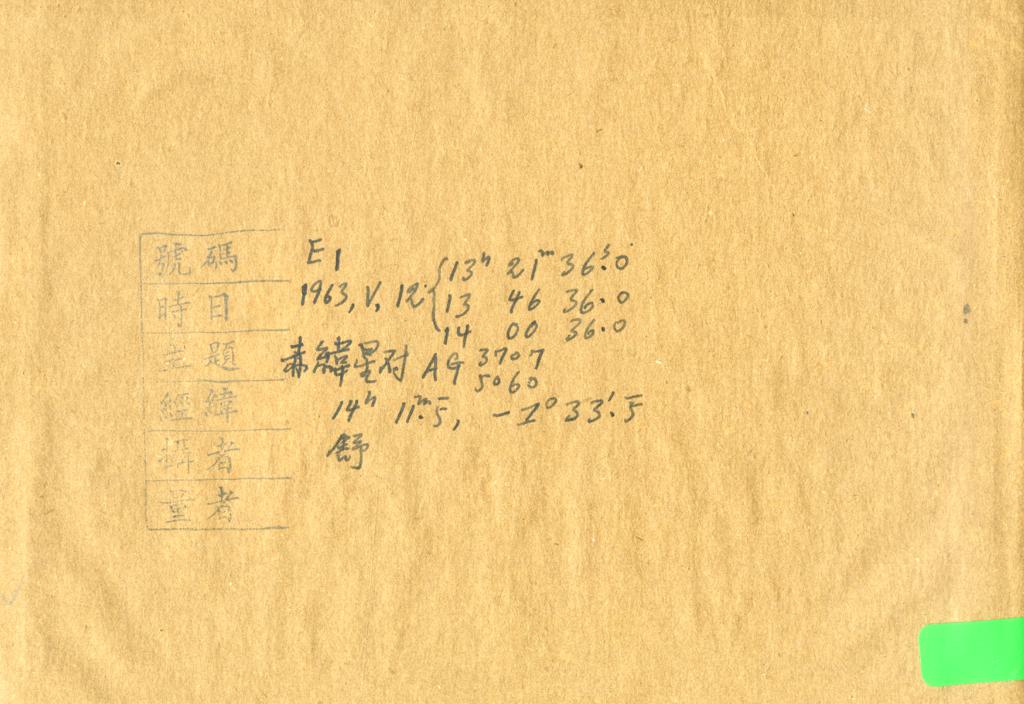 號碼 E1
時日 1963, V, 12. { 13ʰ 21ᵐ 36ˢ.0
13 46 36.0
14 00 36.0
主題 赤緯星对 AG 3707
5060
經緯 14ʰ 11ᵐ.5, -1° 33'.5
攝者 舒
量者